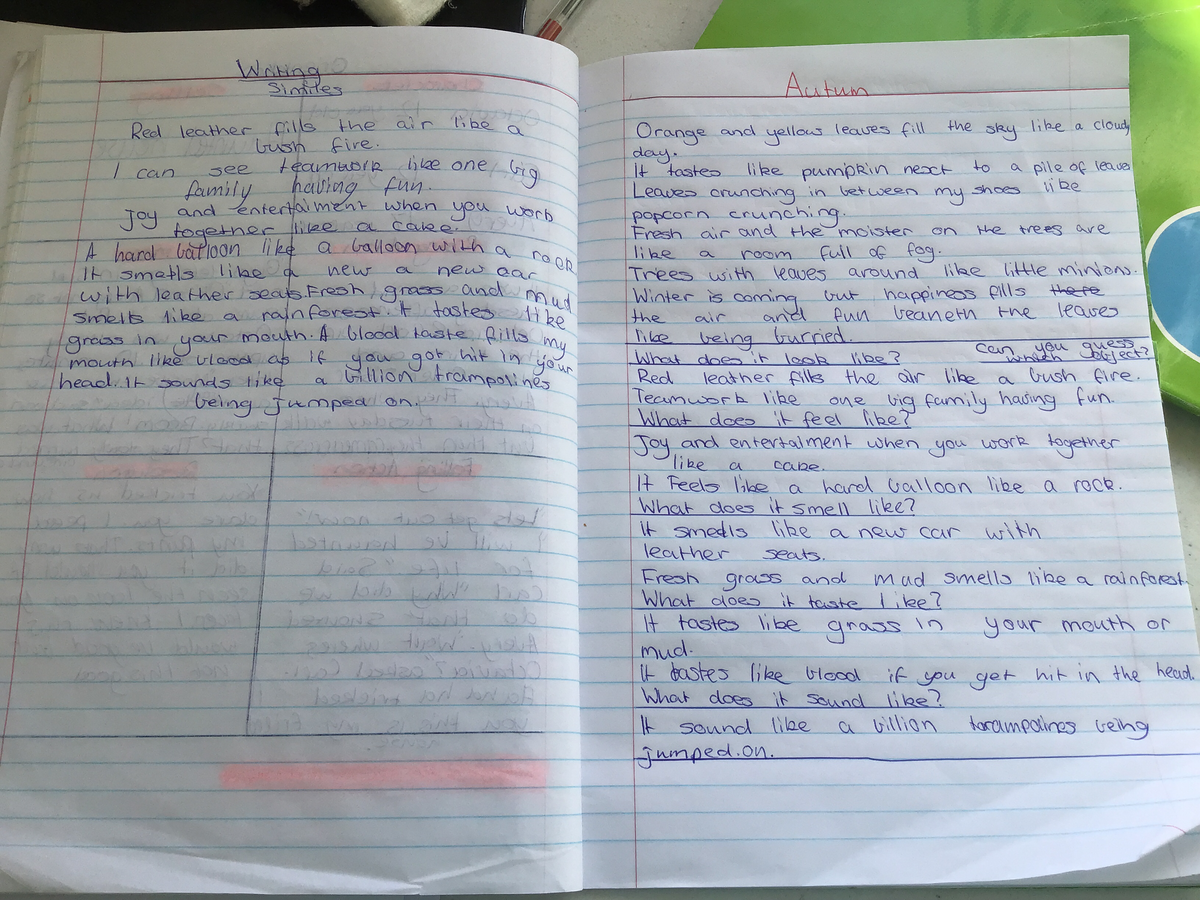 Writing
Similes
Red leather fills the air like a
bush fire.
I can see teamwork like one big
family having fun.
Joy and entertaiment when you work
together like a cake.
A hard balloon like a balloon with a rock
It smells like a new a new car
with leather seats. Fresh grass and mud
smells like a rainforest. It tastes like
grass in your mouth. A blood taste fills my
mouth like blood as if you got hit in your
head. It sounds like a billion trampolines
being jumped on.
Autum
Orange and yellow leaves fill the sky like a cloudy
day.
It tastes like pumpkin next to a pile of leaves
Leaves crunching in between my shoes like
popcorn crunching.
Fresh air and the moister on the trees are
like a room full of fog.
Trees with leaves around like little minions.
Winter is coming but happiness fills there
the air and fun beaneth the leaves
like being burried.
What does it look like? Can you guess
which object?
Red leather fills the air like a bush fire.
Teamwork like one big family having fun.
What does it feel like?
Joy and entertaiment when you work together
like a cake.
It Feels like a hard balloon like a rock.
What does it smell like?
It smells like a new car with
leather seats.
Fresh grass and mud smells like a rainforest
What does it taste like?
It tastes like grass in your mouth or
mud.
It tastes like blood if you get hit in the head.
What does it sound like?
It sound like a billion torampolines being
jumped on.